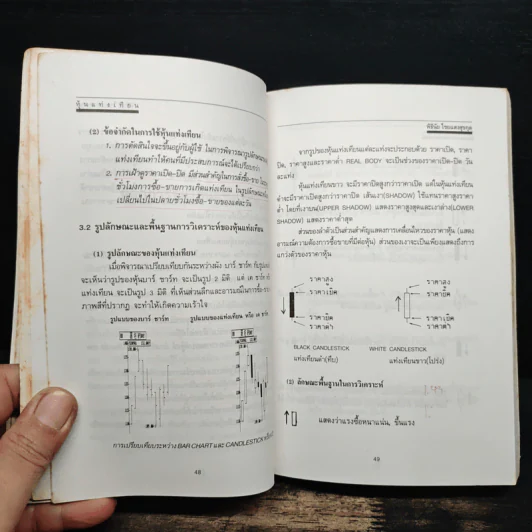 หุ้นแท่งเทียน
(2) ข้อจำกัดในการใช้หุ้นแท่งเทียน
1. การตัดสินใจจะขึ้นอยู่กับผู้ใช้ ในการพิจารณารูปลักษณะ
แท่งเทียนทำให้คนที่มีประสบการณ์จะได้เปรียบกว่า
2. การเฝ้าดูราคาเปิด-ปิด มีส่วนสำคัญในการสั่งซื้อ-ขาย
ชั่วโมงการซื้อ-ขายการเกิดแท่งเทียน ในรูปลักษณะ
เปลี่ยนไปในปลายชั่วโมงซื้อ-ขายของแต่ละวัน
3.2 รูปลักษณะและพื้นฐานการวิเคราะห์ของหุ้นแท่งเทียน
(1) รูปลักษณะของหุ้นแท่งเทียน
เมื่อพิจารณาเปรียบเทียบกันระหว่างผัง บาร์ ชาร์ท กับรูป
จะเห็นว่ารูปของหุ้นบาร์ ชาร์ท จะเป็นรูป 2 มิติ แต่ เค ชาร์ท
แท่งเทียน จะเป็นรูป 3 มิติ ที่เห็นส่วนลึกและอารมณ์ในการซื้อ-ขาย
ภาพสีที่ปรากฏ จะทำให้เกิดความเร้าใจ
รูปแบบของบาร์ ชาร์ท รูปแบบของแท่งเทียน หรือ เค ชาร์ท
การเปรียบเทียบระหว่าง BAR CHART และ CANDLESTICK
48
พิชิฉัย ไชยแสงสุขกุล
จากรูปของหุ้นแท่งเทียนแต่ละแท่งจะประกอบด้วย ราคาเปิด, ราคา
ปิด, ราคาสูงและราคาต่ำ REAL BODY จะเป็นช่วงของราคาเปิด-ปิด วัน
ละแท่ง
หุ้นแท่งเทียนขาว จะมีราคาปิดสูงกว่าราคาเปิด แต่ในหุ้นแท่งเทียน
ดำจะมีราคาเปิดสูงกว่าราคาปิด เส้นเงา(SHADOW) ใช้แทนราคาสูงราคา
ต่ำ โดยที่เงาบน(UPPER SHADOW) แสดงราคาสูงสุดและเงาล่าง(LOWER
SHADOW) แสดงราคาต่ำสุด
ส่วนของลำตัวเป็นส่วนสำคัญแสดงการเคลื่อนไหวของราคาหุ้น (แสดง
อารมณ์ความต้องการซื้อขายที่มีต่อหุ้น) ส่วนของเงาจะเป็นเพียงแสดงถึงการ
แกว่งตัวของราคาหุ้น
ราคาสูง ราคาสูง
ราคาเปิด ราคาปิด
ราคาปิด ราคาเปิด
ราคาต่ำ ราคาต่ำ
BLACK CANDLESTICK WHITE CANDLESTICK
แท่งเทียนดำ(ทึบ) แท่งเทียนขาว(โปร่ง)
(2) ลักษณะพื้นฐานในการวิเคราะห์
แสดงว่าแรงซื้อหนาแน่น, ขึ้นแรง
49